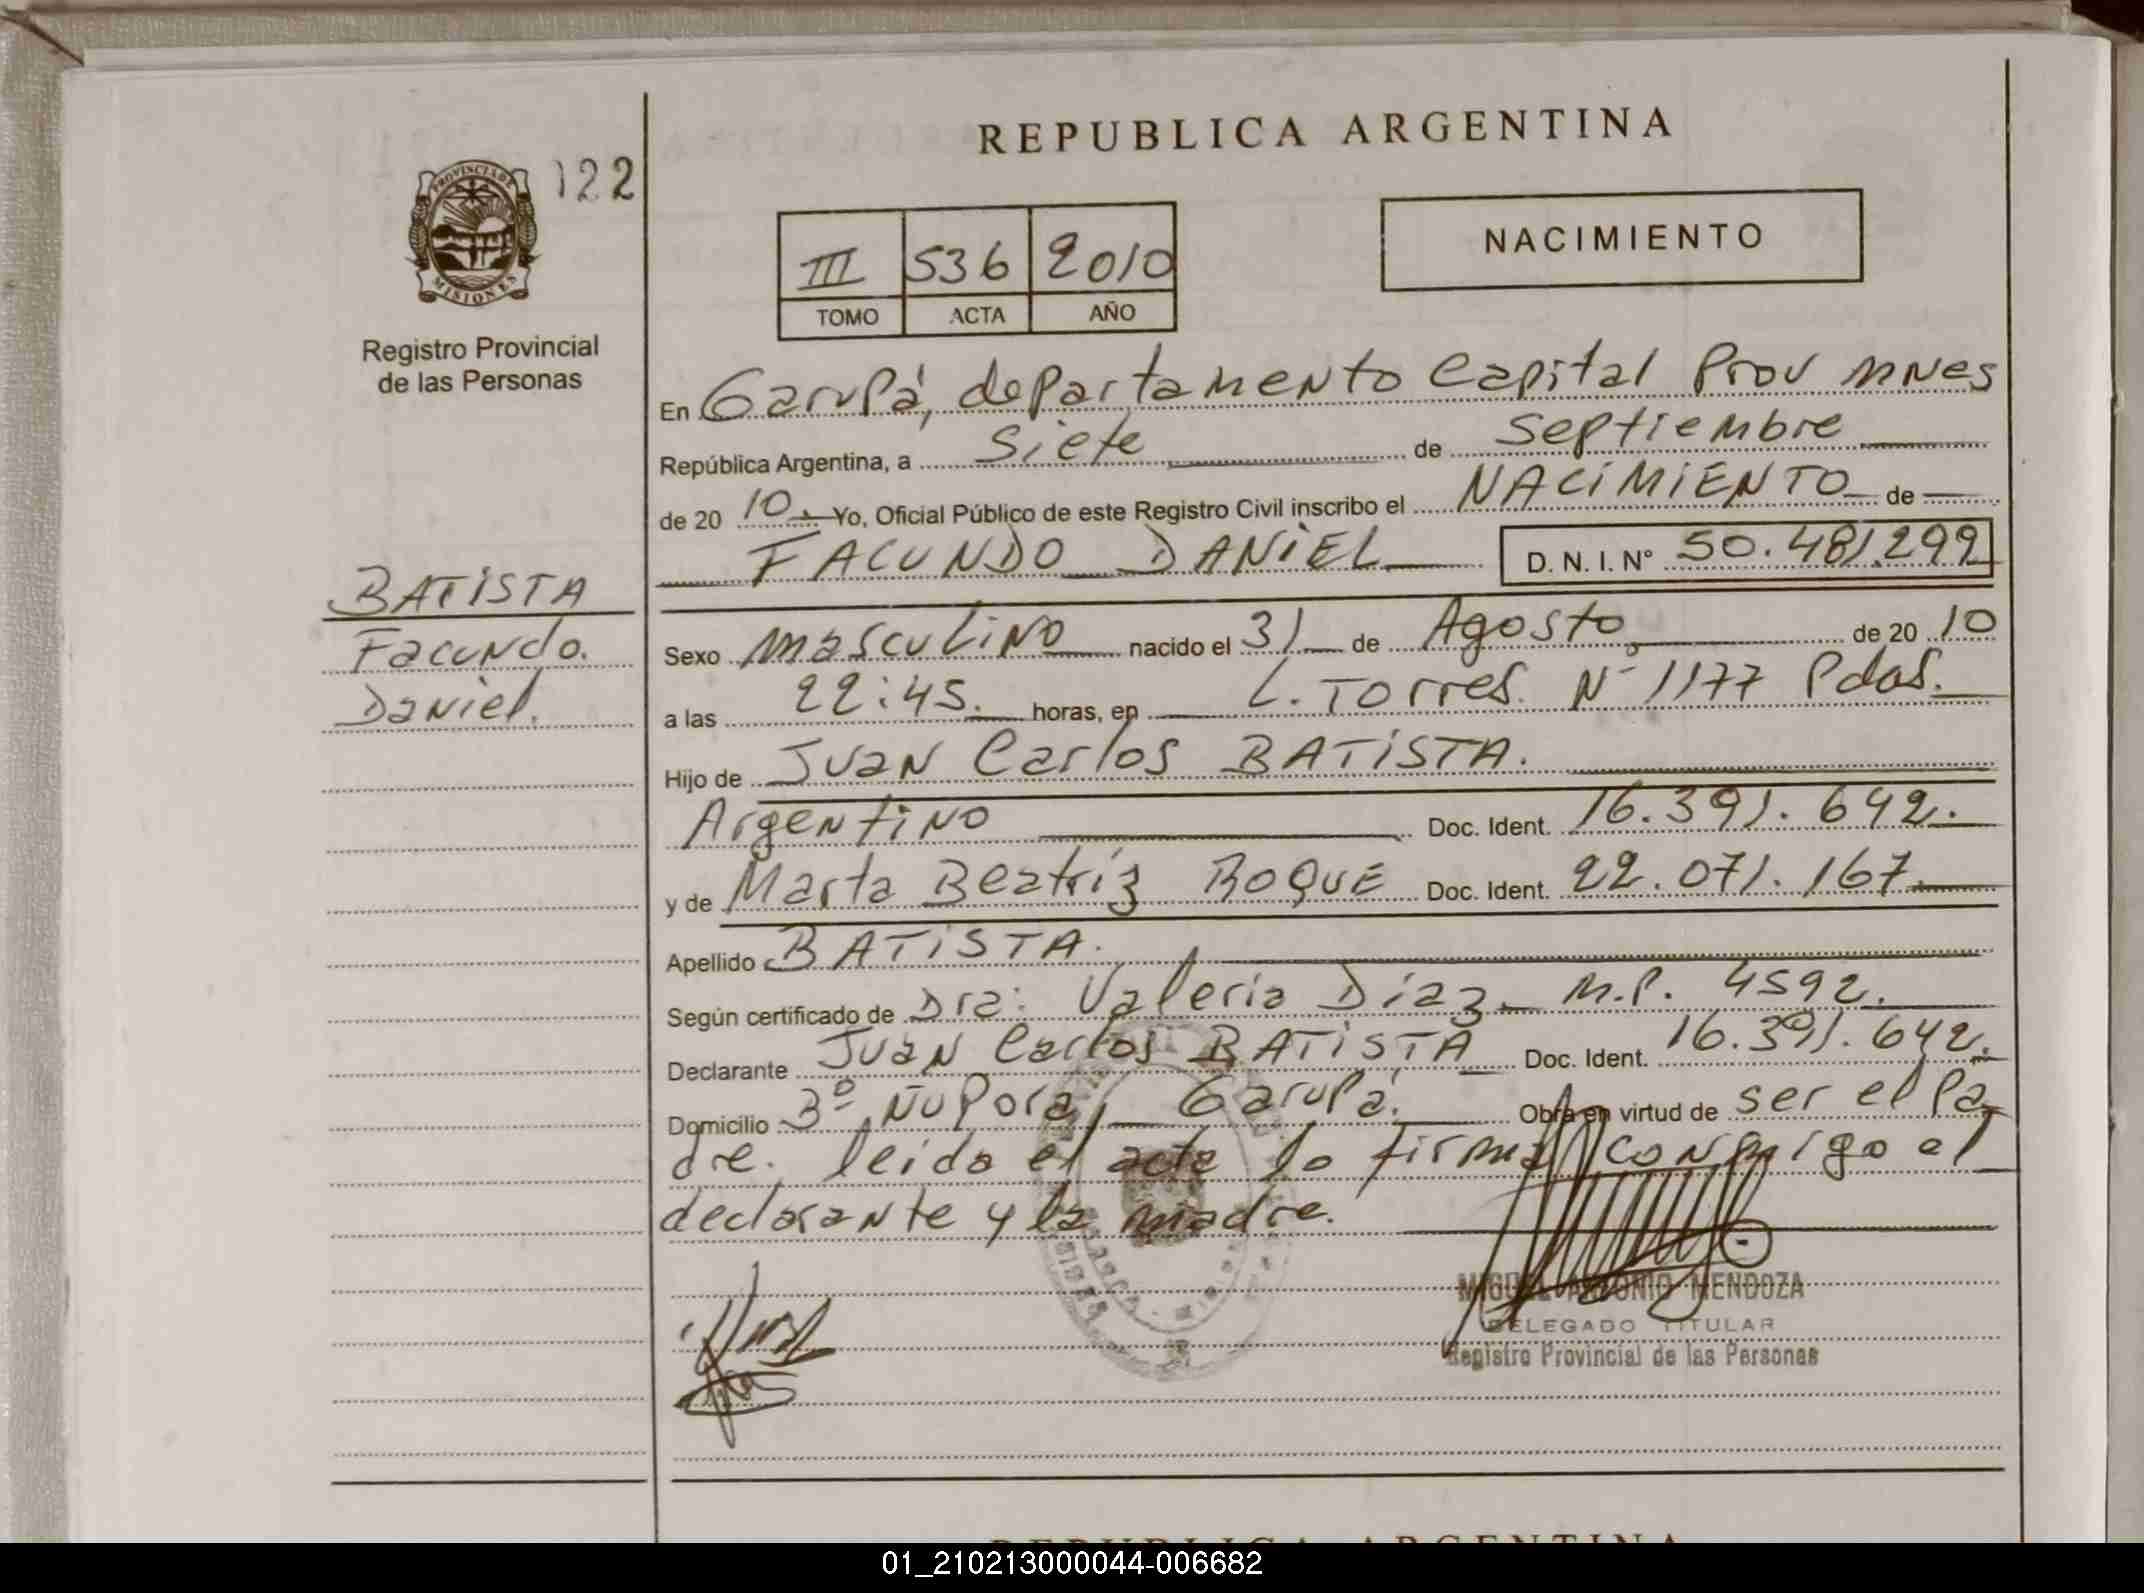 REPUBLICA ARGENTINA
PROVINCIA DE
MISIONES
122
Registro Provincial
de las Personas
III 536 2010
TOMO ACTA AÑO
NACIMIENTO
En Garupá, departamento Capital Prov Mnes
República Argentina, a Siete de Septiembre
de 2010. Yo, Oficial Público de este Registro Civil inscribo el NACIMIENTO de
FACUNDO DANIEL D. N. I. N° 50.481.299
BATISTA
Facundo.
Daniel.
Sexo masculino nacido el 31 de Agosto de 2010
a las 22:45. horas, en L. Torres. N° 1177 Pdas.
Hijo de Juan Carlos BATISTA.
Argentino Doc. Ident. 16.391.642.
y de Marta Beatriz ROQUE Doc. Ident. 22.071.167.
Apellido BATISTA.
Según certificado de Dra: Valeria Díaz M.P. 4592.
Declarante Juan Carlos BATISTA Doc. Ident. 16.391.642.
Domicilio Bº Ñu Porá, Garupá. Obra en virtud de ser el Pa
dre. leida el acta lo firma conmigo el
declarante y la madre.
MIGUEL ANTONIO MENDOZA
DELEGADO TITULAR
Registro Provincial de las Personas
REPUBLICA ARGENTINA
01_210213000044-006682